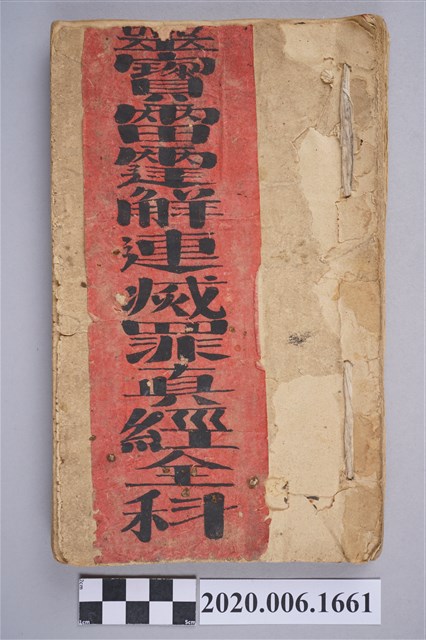 靈寶雷霆解連滅罪真經全科
1cm 5cm
2020.006.1661